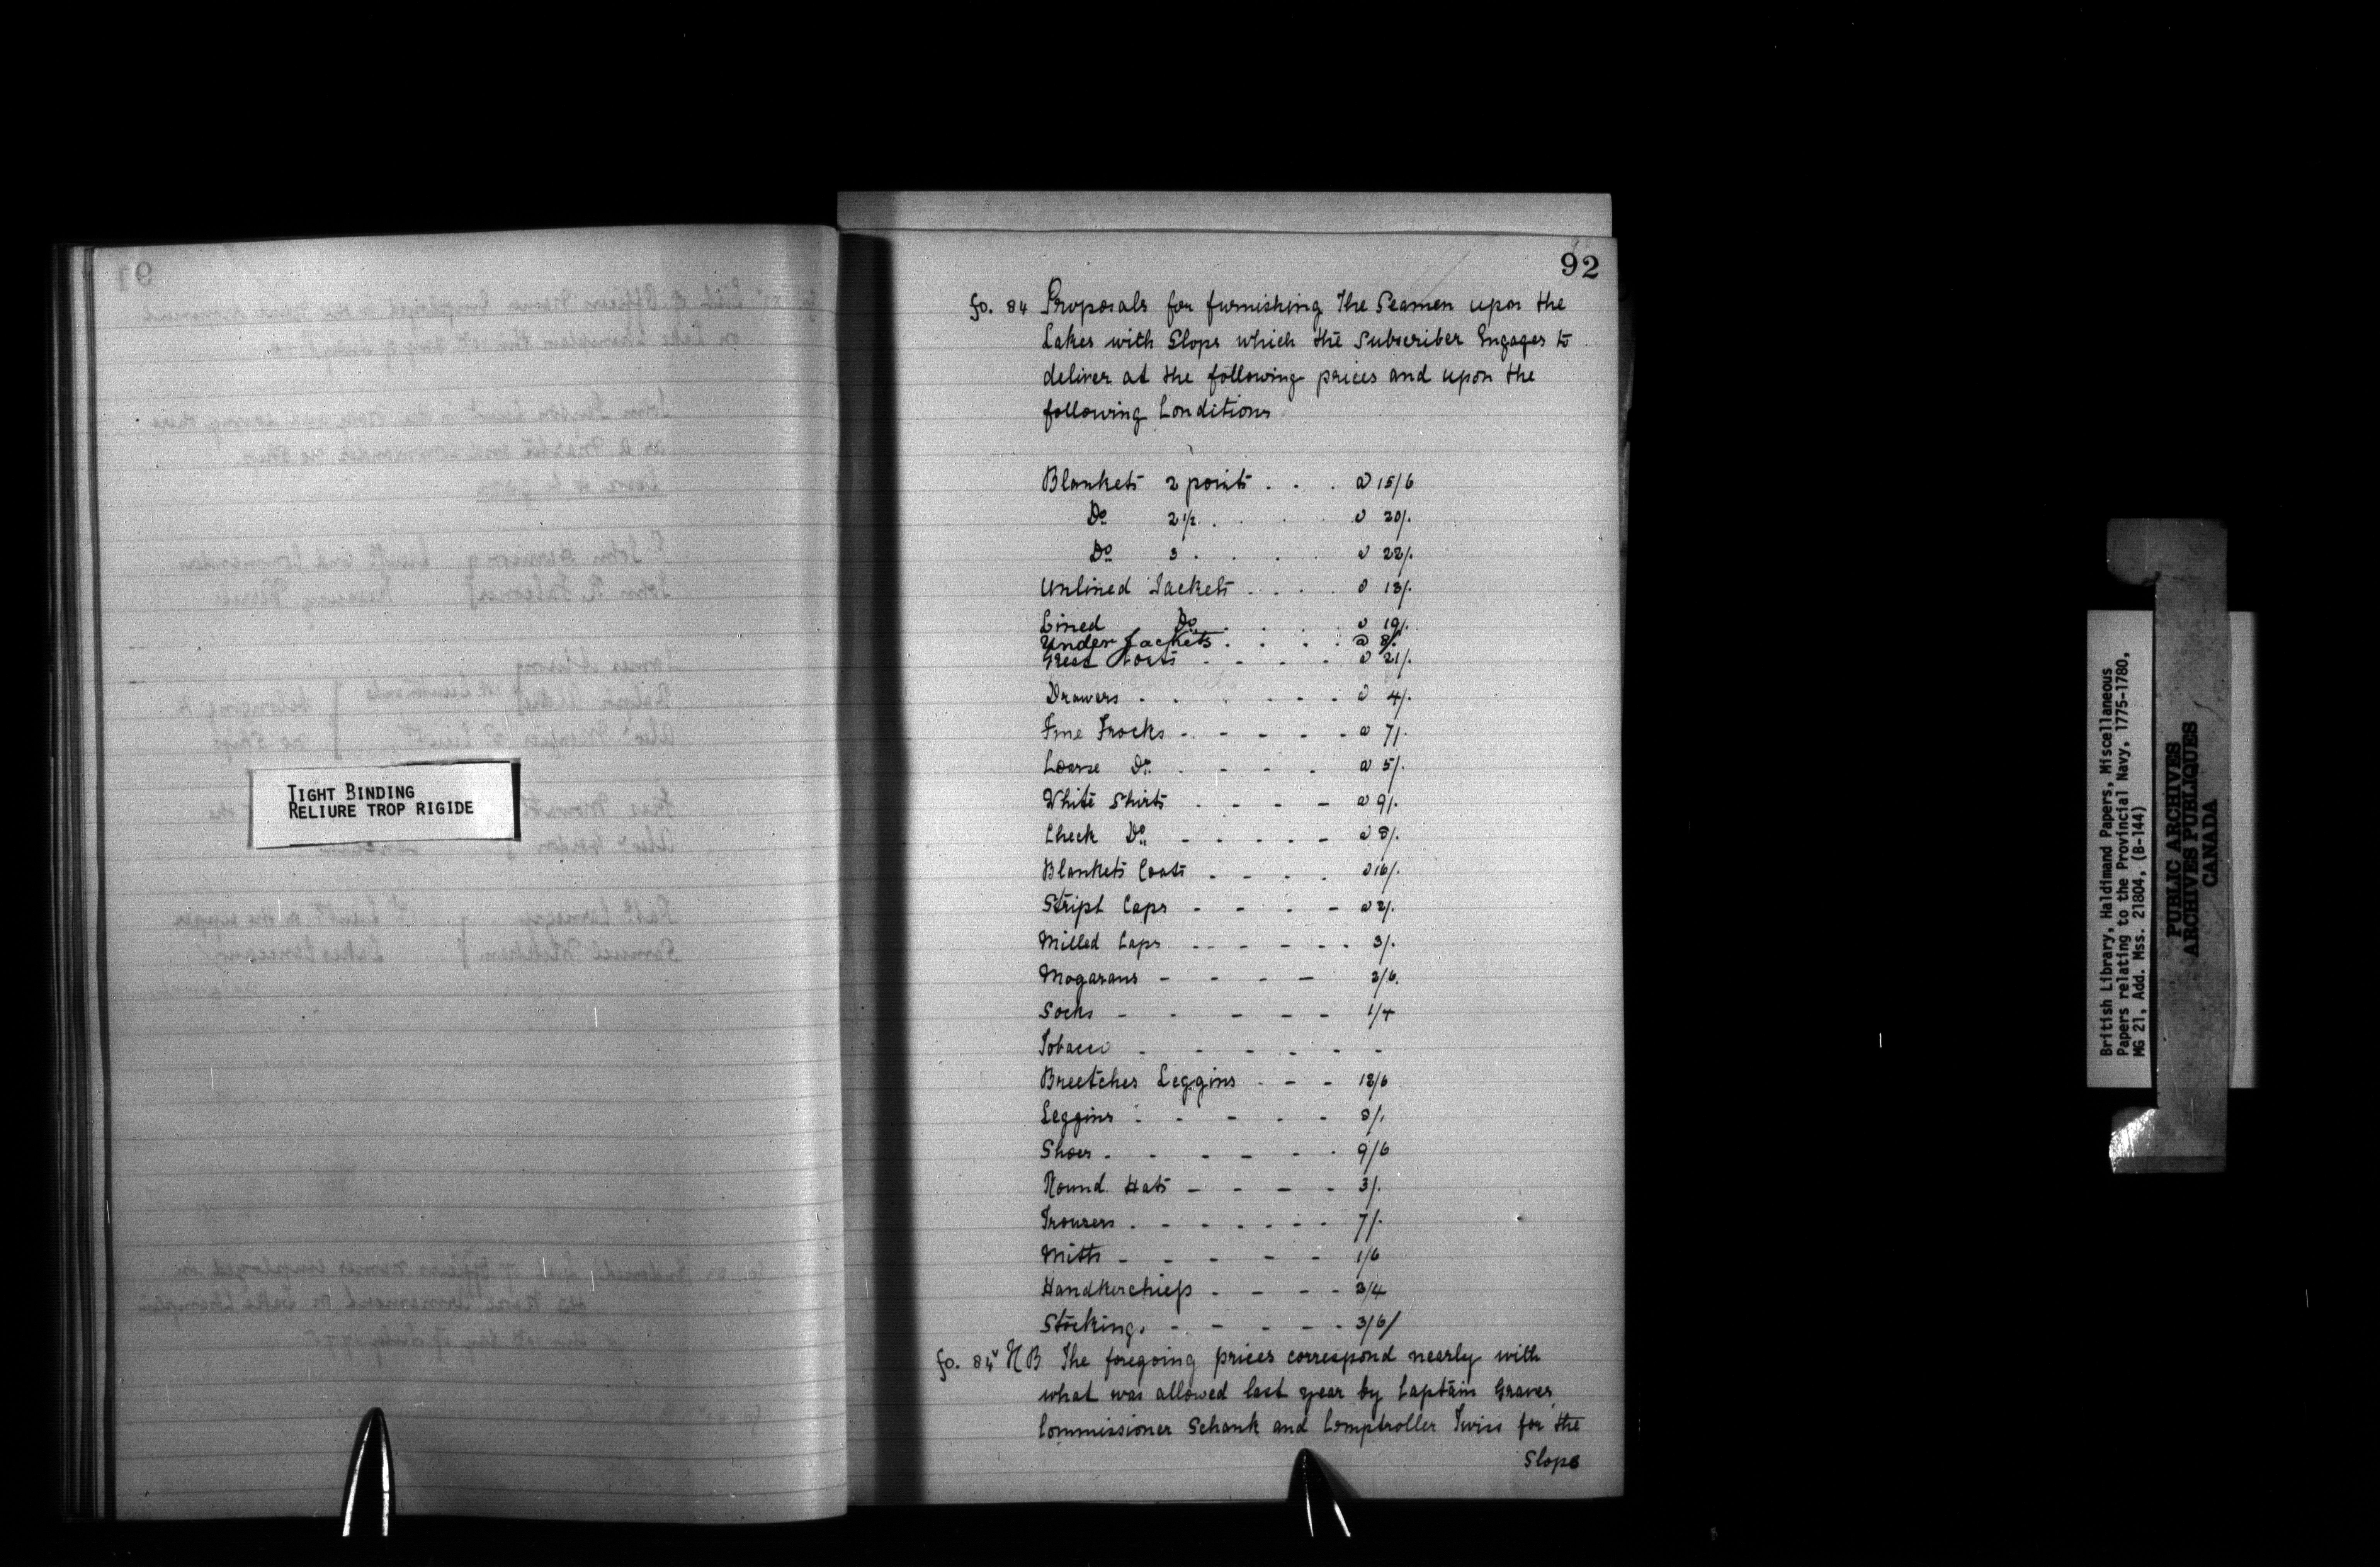 92
fo. 84 Proposals for furnishing The Seamen upon the
Lakes with Slops which the Subscriber Engages to
deliver at the following prices and upon the
following Conditions
Blankets 2 points . . . @ 15/6
Do 2 1/2 . . . @ 20/.
Do 3 . . . . @ 22/.
Unlined Jackets . . . . @ 13/.
Lined Do . . . @ 19/.
Under Jackets . . . . @ 8/.
Great Coats . - - - @ 21/.
Drawers . . . . - - @ 4/.
Fine Frocks - - - - - @ 7/.
Coarse Do . - - - . @ 5/.
White Shirts . - - - @ 9/.
Check Do - - - - - @ 8/.
Blankets Coats . - - . @ 16/.
Stript Caps - - - - @ 2/.
Milled Caps - - - - - . 3/.
Mogasans - - - - 3/6.
Socks - - - - - 1/4
Tobacco . - - - - - -
Breetches Leggins - - - 12/6
Leggins - - - - - 8/.
Shoes . - - - - . 9/6
Round Hats - - - - 3/.
Trousers . - - - - - - 7/.
Mitts - - - - - 1/6
Handkerchiefs . - - - 3/4
Stockings - - - - - 3/6/
fo. 84v N B The foregoing prices correspond nearly with
what was allowed last year by Captain Graves,
Commissioner Schank and Comptroller Twiss for the
Slops
TIGHT BINDING
RELIURE TROP RIGIDE
British Library, Haldimand Papers, Miscellaneous
Papers relating to the Provincial Navy, 1775-1780,
MG 21, Add. Mss. 21804, (B-144)
PUBLIC ARCHIVES
ARCHIVES PUBLIQUES
CANADA